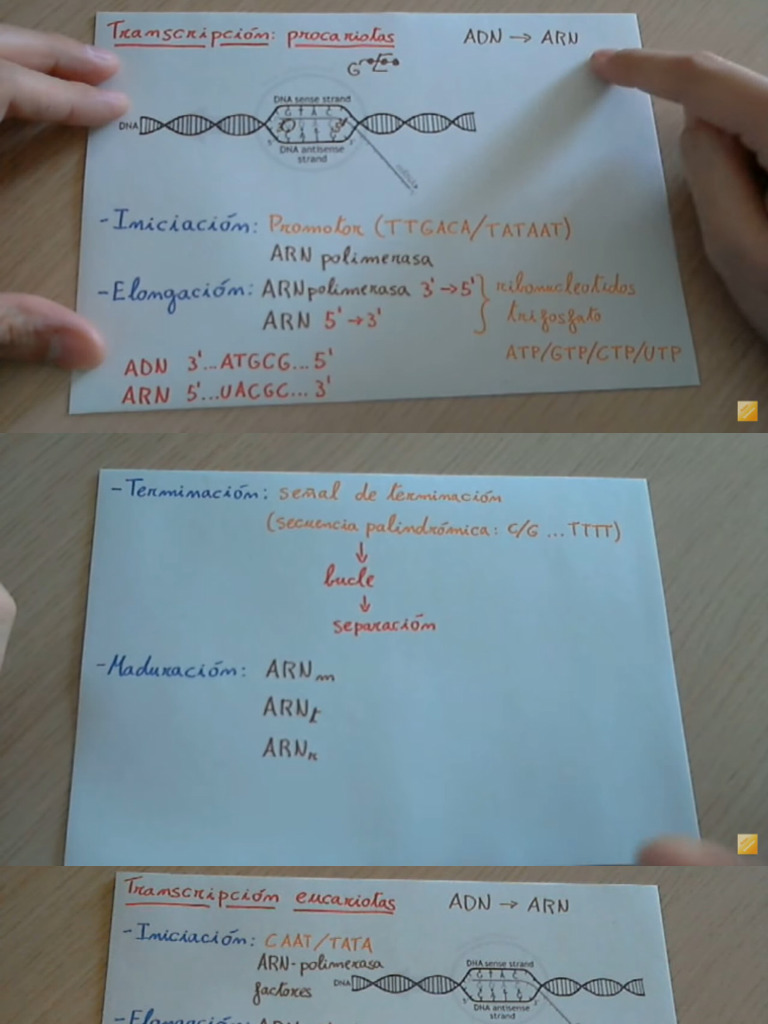 Transcripción: procariotas ADN → ARN
G
DNA sense strand
G T A C
DNA
DNA antisense
strand
-Iniciación: Promotor (TTGACA/TATAAT)
ARN polimerasa
-Elongación: ARNpolimerasa 3'→5' } ribonucleotidos
ARN 5'→3' trifosfato
ATP/GTP/CTP/UTP
ADN 3'...ATGCG...5'
ARN 5'...UACGC...3'
-Terminación: señal de terminación
(secuencia palindrómica: C/G ...TTTT)
↓
bucle
↓
separación
-Maduración: ARNm
ARNt
ARNr
Transcripción eucariotas ADN → ARN
-Iniciación: CAAT/TATA
ARN-polimerasa
factores
DNA sense strand
G T A C
DNA
DNA antisense
strand
-Elongación: